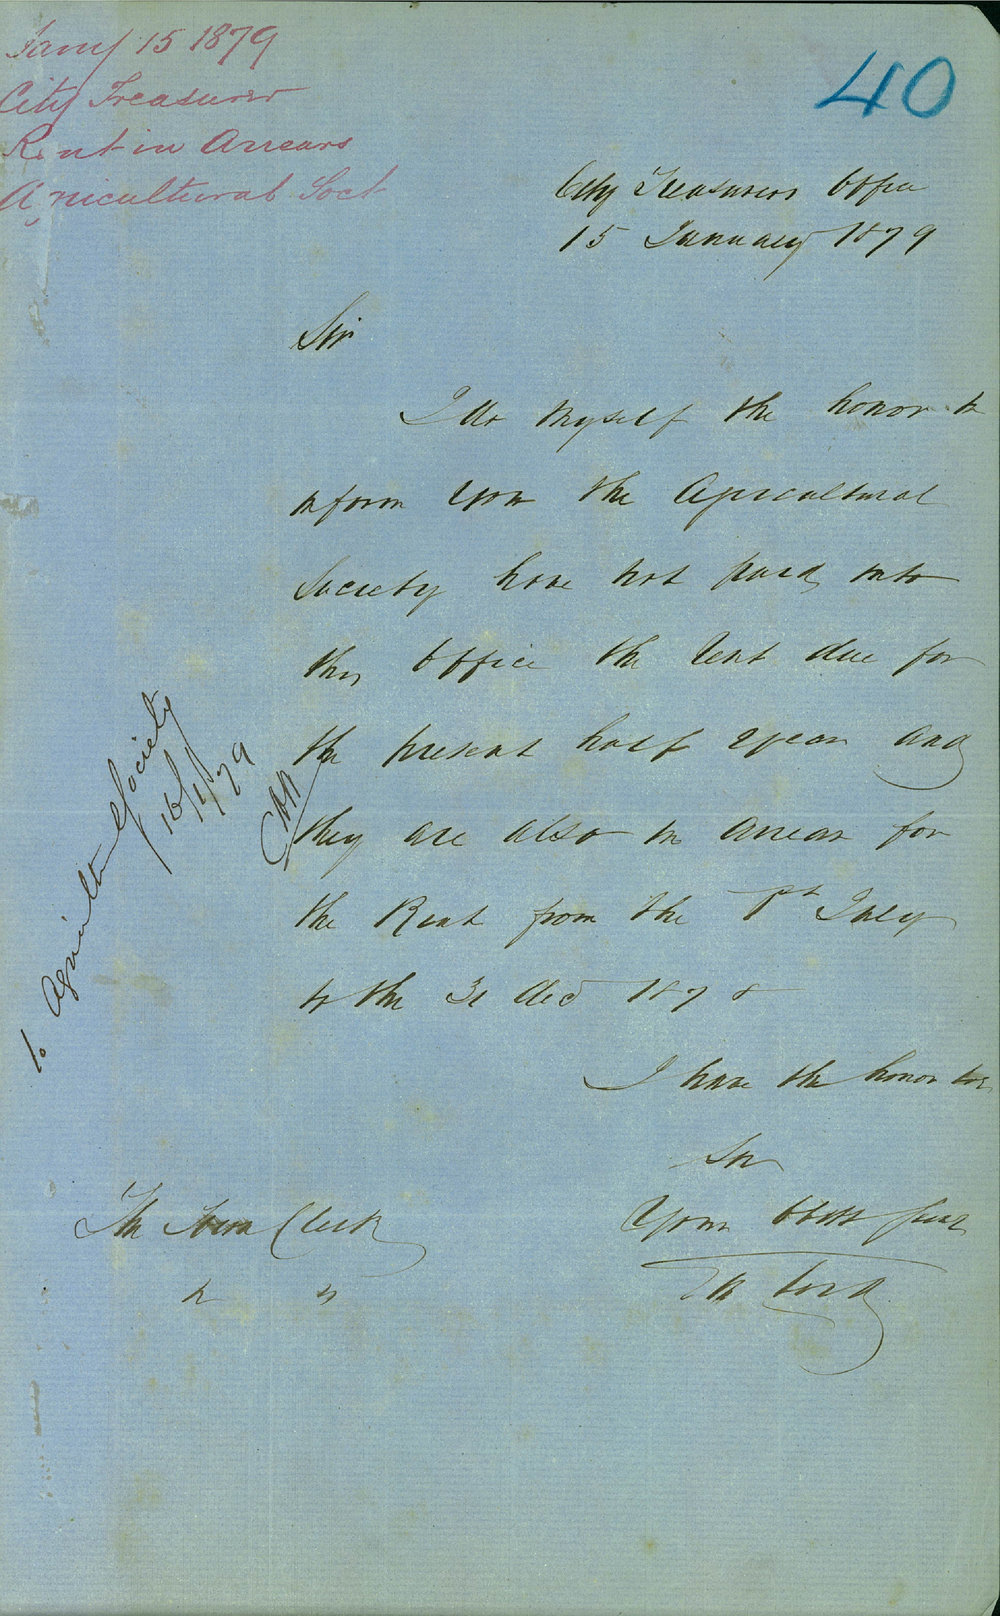 Jany 15 1879
City Treasurer
Rent in Arrears
Agricultural Soct
40
City Treasurers Office
15 January 1879
Sir
I do myself the honor to
inform you the Agricultural
Society have not paid into
this Office the Rent due for
the present half year and
they are also in arrear for
the Rent from the 1st July
to the 31 Decr 1878
I have the honor to be
Sir
Your Obdt Servt
The Town Clerk
To Agricultl Society
16/1/79